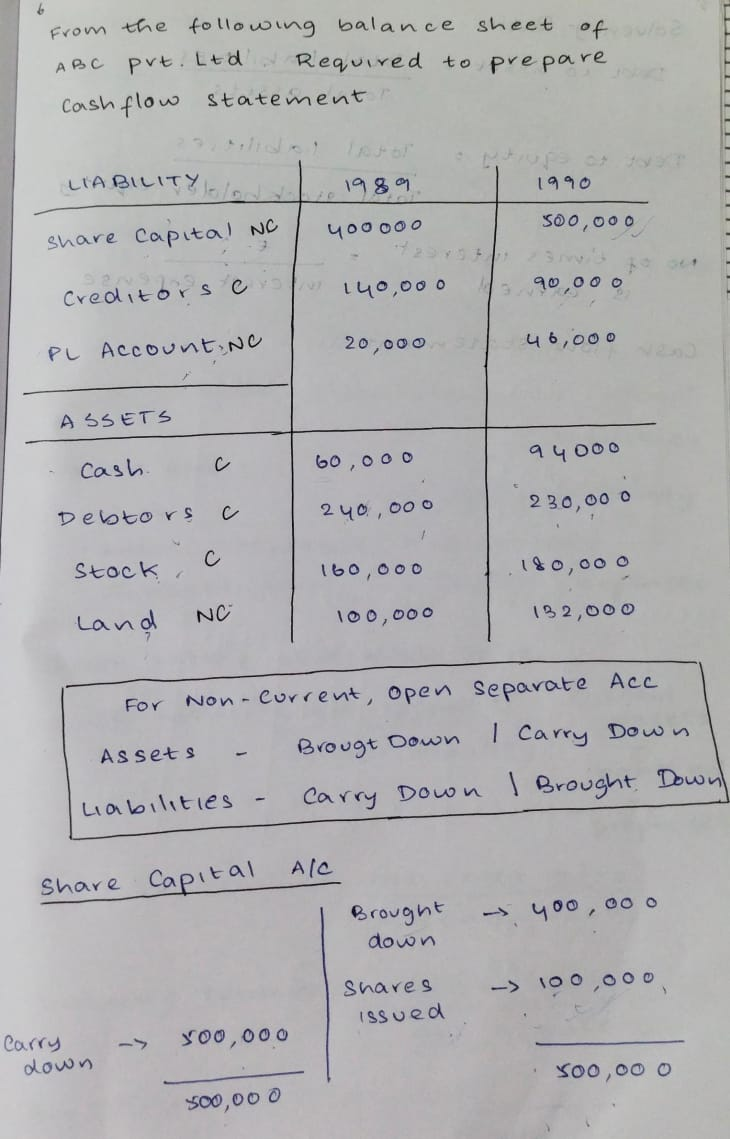 6
From the following balance sheet of
ABC Pvt. Ltd Required to prepare
Cashflow statement
LIABILITY 1989 1990
Share Capital NC 400000 500,000
Creditors C 140,000 90,000
PL Account NC 20,000 46,000
ASSETS
Cash. C 60,000 94000
Debtors C 240,000 230,000
Stock C 160,000 180,000
Land NC 100,000 132,000
For Non-Current, open separate Acc
Assets - Brougt Down | Carry Down
Liabilities - Carry Down | Brought Down
Share Capital A/C
Brought down → 400,000
Shares issued → 100,000
Carry down → 500,000
500,000 500,000